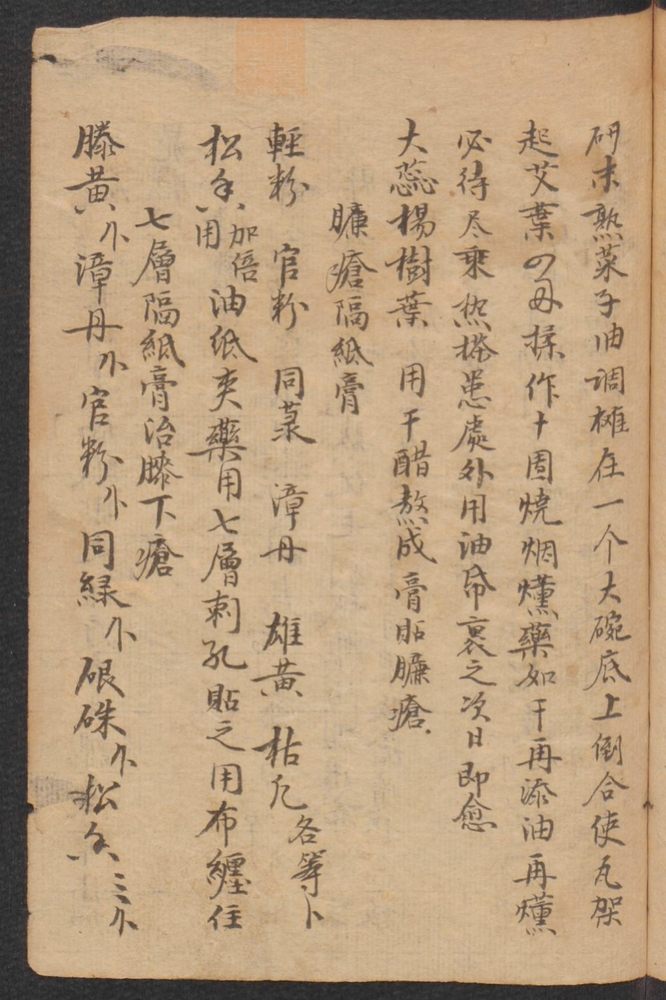 研末熟菜子油调摊在一个大碗底上倒合使瓦架
起艾葉四毋揉作十团烧烟燻藥如干再添油再燻
必待尽乘热搽患處外用油帋裹之次日即愈
大蕊楊樹葉 用干醋熬成膏貼臁瘡
臁瘡隔紙膏
輕粉 官粉 同菉 漳丹 雄黄 枯凡 各等卜
松香用加倍 油纸夾藥用七層刺孔貼之用布纏住
七層隔紙膏治膝下瘡
滕黄 漳丹 官粉 同緑 硍硃 松香三